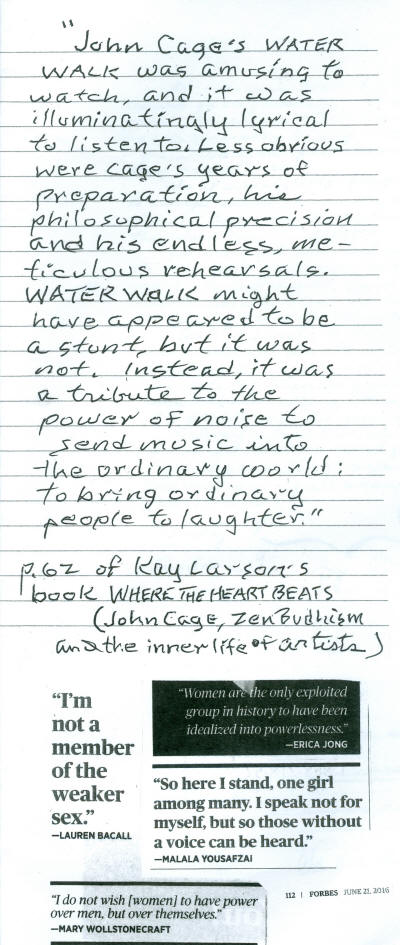 "
John Cage's WATER
WALK was amusing to
watch, and it was
illuminatingly lyrical
to listen to. Less obvious
were Cage's years of
preparation, his
philosophical precision
and his endless, me-
ticulous rehearsals.
WATER WALK might
have appeared to be
a stunt, but it was
not. Instead, it was
a tribute to the
power of noise to
send music into
the ordinary world:
to bring ordinary
people to laughter."
p.62 of Kay Larson's
book WHERE THE HEART BEATS
(John Cage, Zen Budhism
and the inner life of artists)
"I'm
not a
member
of the
weaker
sex."
—LAUREN BACALL
"Women are the only exploited
group in history to have been
idealized into powerlessness."
—ERICA JONG
"So here I stand, one girl
among many. I speak not for
myself, but so those without
a voice can be heard."
—MALALA YOUSAFZAI
"I do not wish [women] to have power
over men, but over themselves."
—MARY WOLLSTONECRAFT
112 | FORBES JUNE 21, 2016